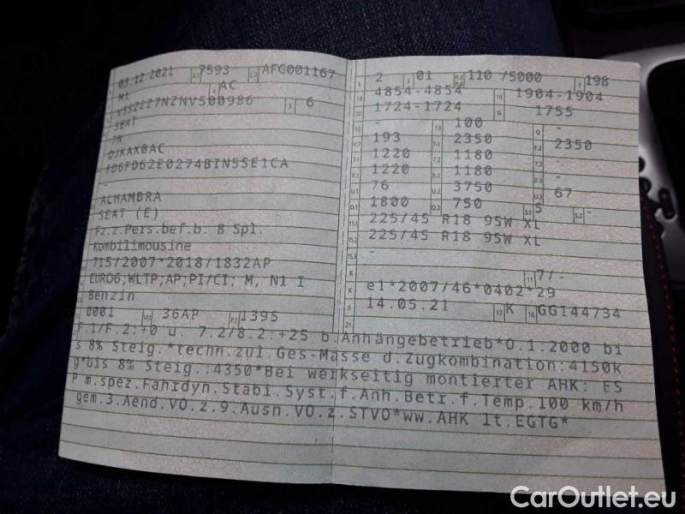 03.12.2021 7593 AFG001167
M1 AC
VSSZZZ7NZNV500986 6
SEAT
7N
DJXAX0AC
FD6FD62E0274BINS5E1CA
-
ALHAMBRA
SEAT (E)
Fz.z.Pers.bef.b. 8 Spl.
Kombilimousine
715/2007*2018/1832AP
EURO6;WLTP;AP;PI/CI; M, N1 I
Benzin
0001 36AP 1395
2 01 110 /5000 198
4854-4854 1904-1904
1724-1724 1755
- 100 -
193 2350 2350
1220 1180 -
1220 1180 -
76 3750 67
1800 750 5 -
225/45 R18 95W XL
225/45 R18 95W XL
-
7/-
e1*2007/46*0402*29
14.05.21 K GG144734
F.1/F.2:+0 u. 7.2/8.2:+25 b.Anhängebetrieb*O.1:2000 bi
s 8% Steig.*techn.zul.Ges-Masse d.Zugkombination:4150k
g*bis 8% Steig.:4350*Bei werkseitig montierter AHK: ES
P m.spez.Fahrdyn.Stabi.Syst.f.Anh.Betr.f.Temp.100 km/h
gem.3.Aend.VO.z.9.Ausn.VO.z.STVO*ww.AHK lt.EGTG*
CarOutlet.eu